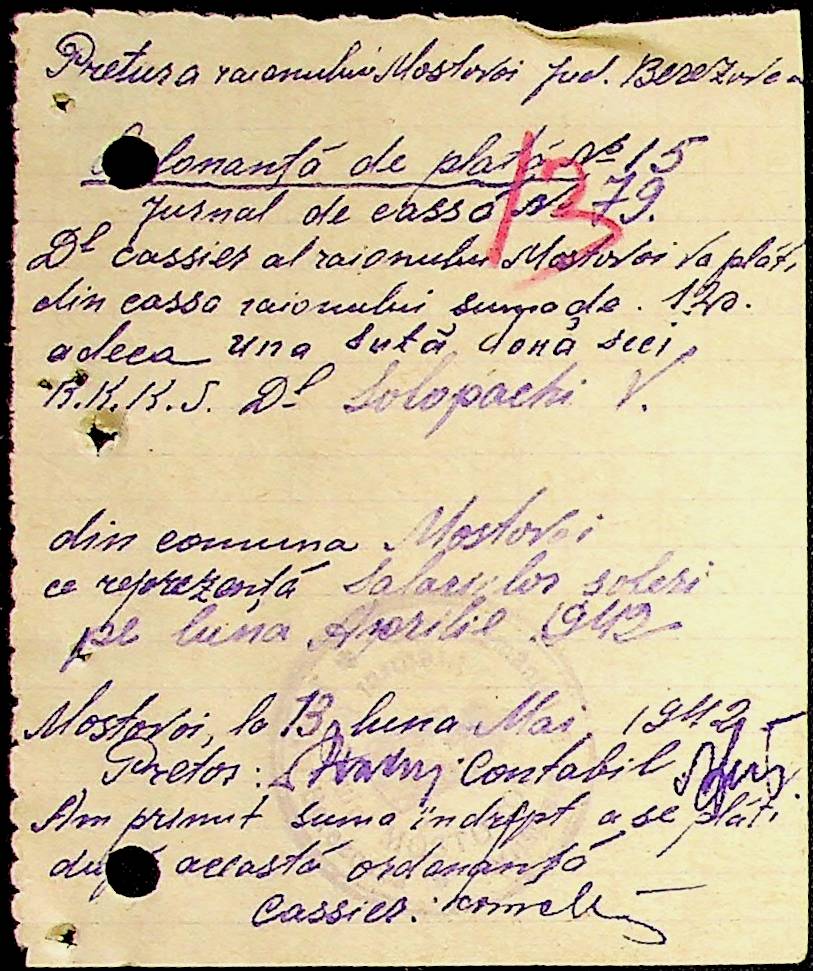 Pretura raionului Mostovoi jud. Berezovca
Ordonanță de plată № 15
13
Jurnal de cassă № 79.
Dl cassier al raionului Mostovoi va plăti
din cassa raionului suma de. 120.
adeca una sută două zeci
R.K.K.S. Dl Solopachi V.
din comuna Mostovoi
ce reprezentă salariilor
pe luna Aprilie 1942
Mostovoi, la 13 luna Mai 1942
Pretor: Contabil
Am primit suma indrept a se plăti
după această ordonanță
Cassier: